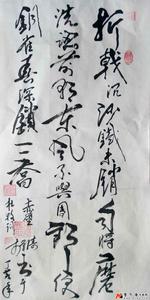 折戟沉沙鐵未銷自將磨
洗認前朝東風不與周郎便
銅雀春深鎖二喬
杜牧詩
赤壁